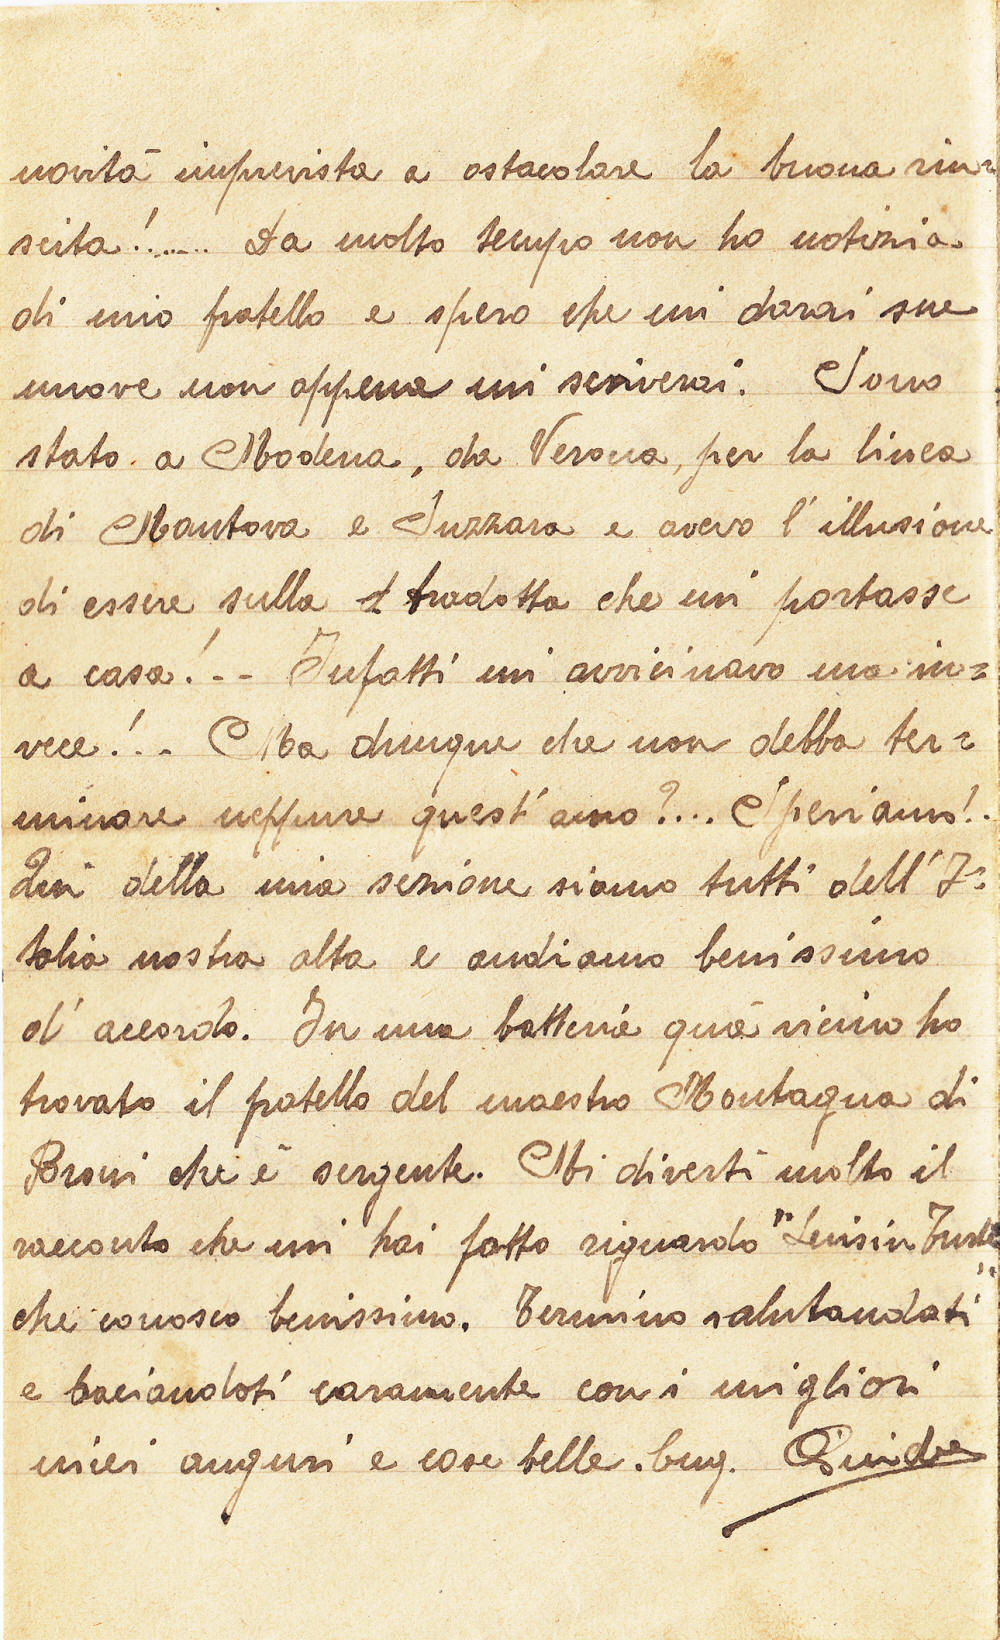 novità imprevista a ostacolare la buona riu=
scita!...... Da molto tempo non ho notizia
di mio fratello e spero che mi darai sue
nuove non appena mi scriverai. Sono
stato a Modena, da Verona, per la linea
di Mantova e Suzzara e avevo l'illusione
di essere sulla tradotta che mi portasse
a casa!.-- Infatti mi avvicinavo ma in=
vece!.- Ma dunque che non debba ter=
minare neppure quest'anno?... Speriamo!.
Qui della mia sezione siamo tutti dell'I=
talia nostra alta e andiamo benissimo
d'accordo. In una batteria quà vicino ho
trovato il fratello del maestro Montagna di
Broni che è sergente. Mi divertì molto il
racconto che mi hai fatto riguardo "Luisin
che conosco benissimo. Termino salutandoti
e baciandoti caramente con i migliori
miei auguri e cose belle.